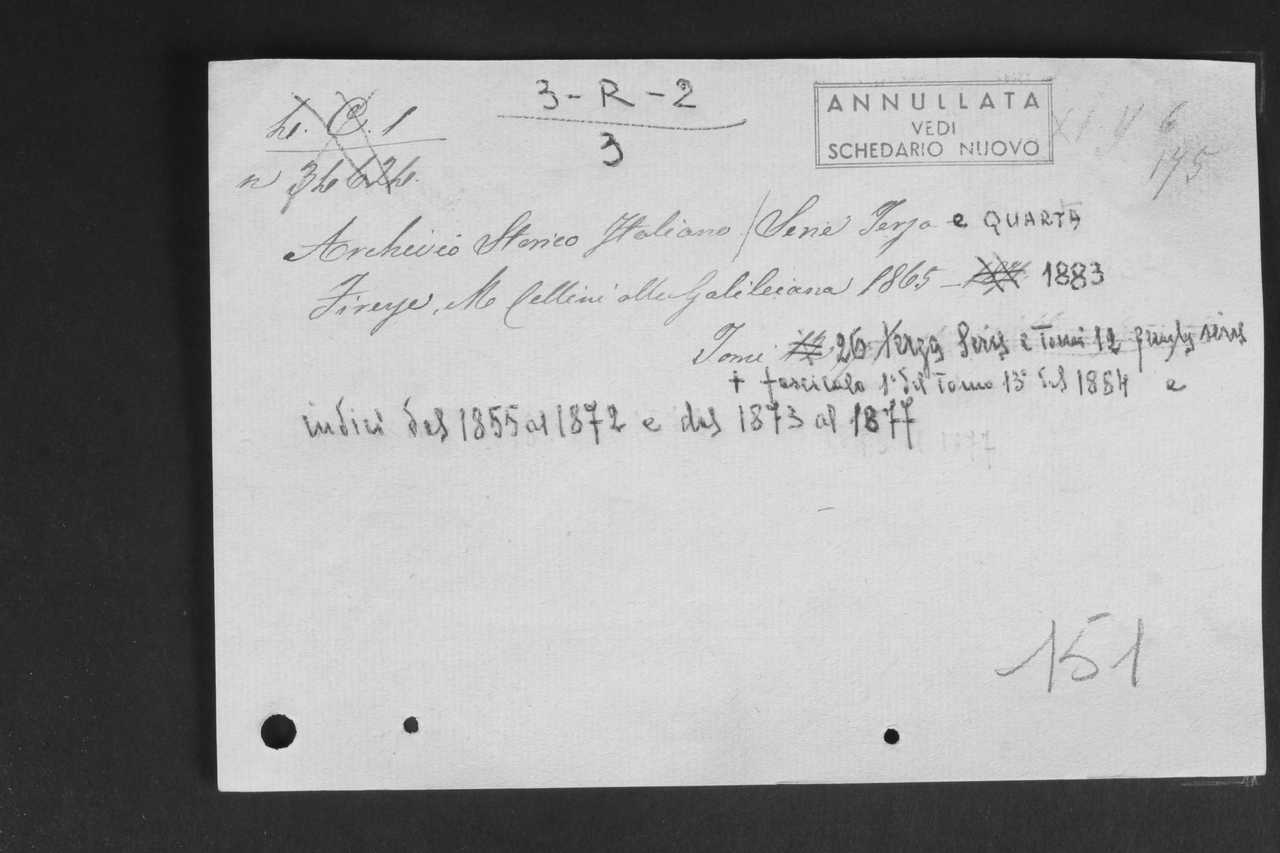 3-R-2
3
ANNULLATA
VEDI
SCHEDARIO NUOVO
XI V 6
175
Archivio Storico Italiano / Serie Terza e QUARTA
Firenze, M Cellini alla Galileiana 1865 - 1883
Tomi 26 terza Serie e Tomi 12 quarta serie
+ fascicolo 1° del Tomo 13° del 1884 e
indici del 1855 al 1872 e del 1873 al 1877
151